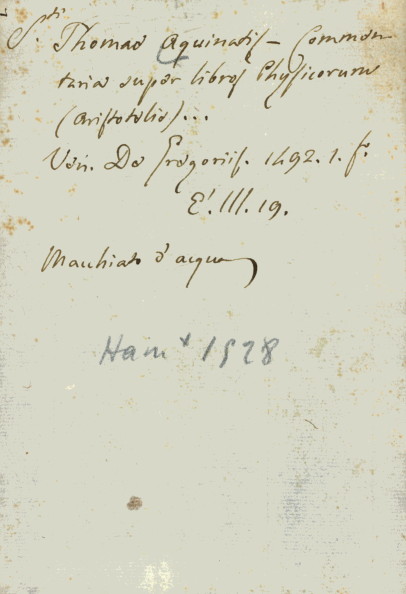 S.ti Thomae Aquinatis - Commen-
taria super libros Physicorum
(Aristotelis)...
Ven. De Gregoriis. 1492. 1. f.
E'. III. 19.
Macchiato d'acqua
Ham * 1528